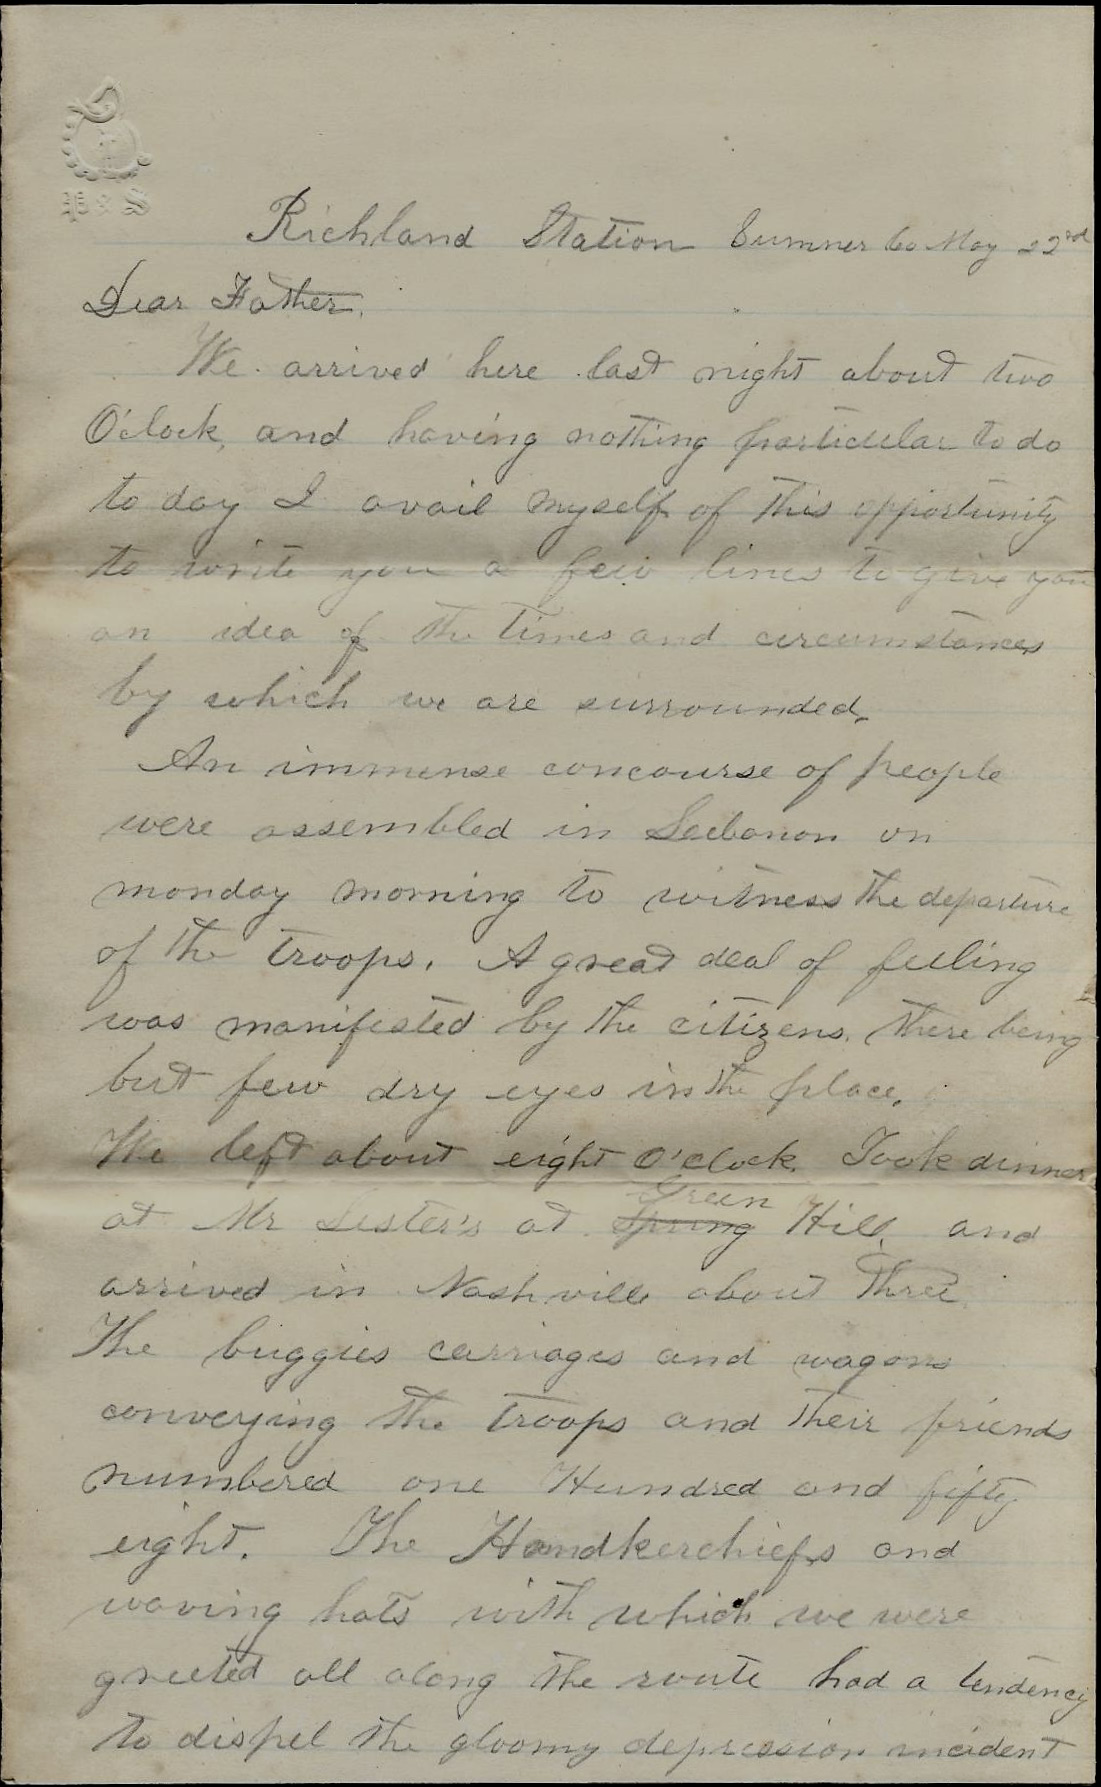 P & S
Richland Station Sumner Co May 22nd
Dear Father.
We arrived here last night about two
O'clock, and having nothing particular to do
to day I avail myself of this opportunity
to write you a few lines to give you
an idea of the times and circumstances
by which we are surrounded.
An immense concourse of people
were assembled in Lebanon on
monday morning to witness the departure
of the troops. A great deal of feeling
was manifested by the citizens. there being
but few dry eyes in the place.
We left about eight O'clock. Took dinner
at Mr Lester's at Spring Green Hill, and
arrived in Nashville about Three
The buggies carriages and wagons
conveying the troops and their friends
numbered one Hundred and fifty
eight. The Handkerchiefs and
waving hats with which we were
greeted all along the route had a tendency
to dispel the gloomy depression incident